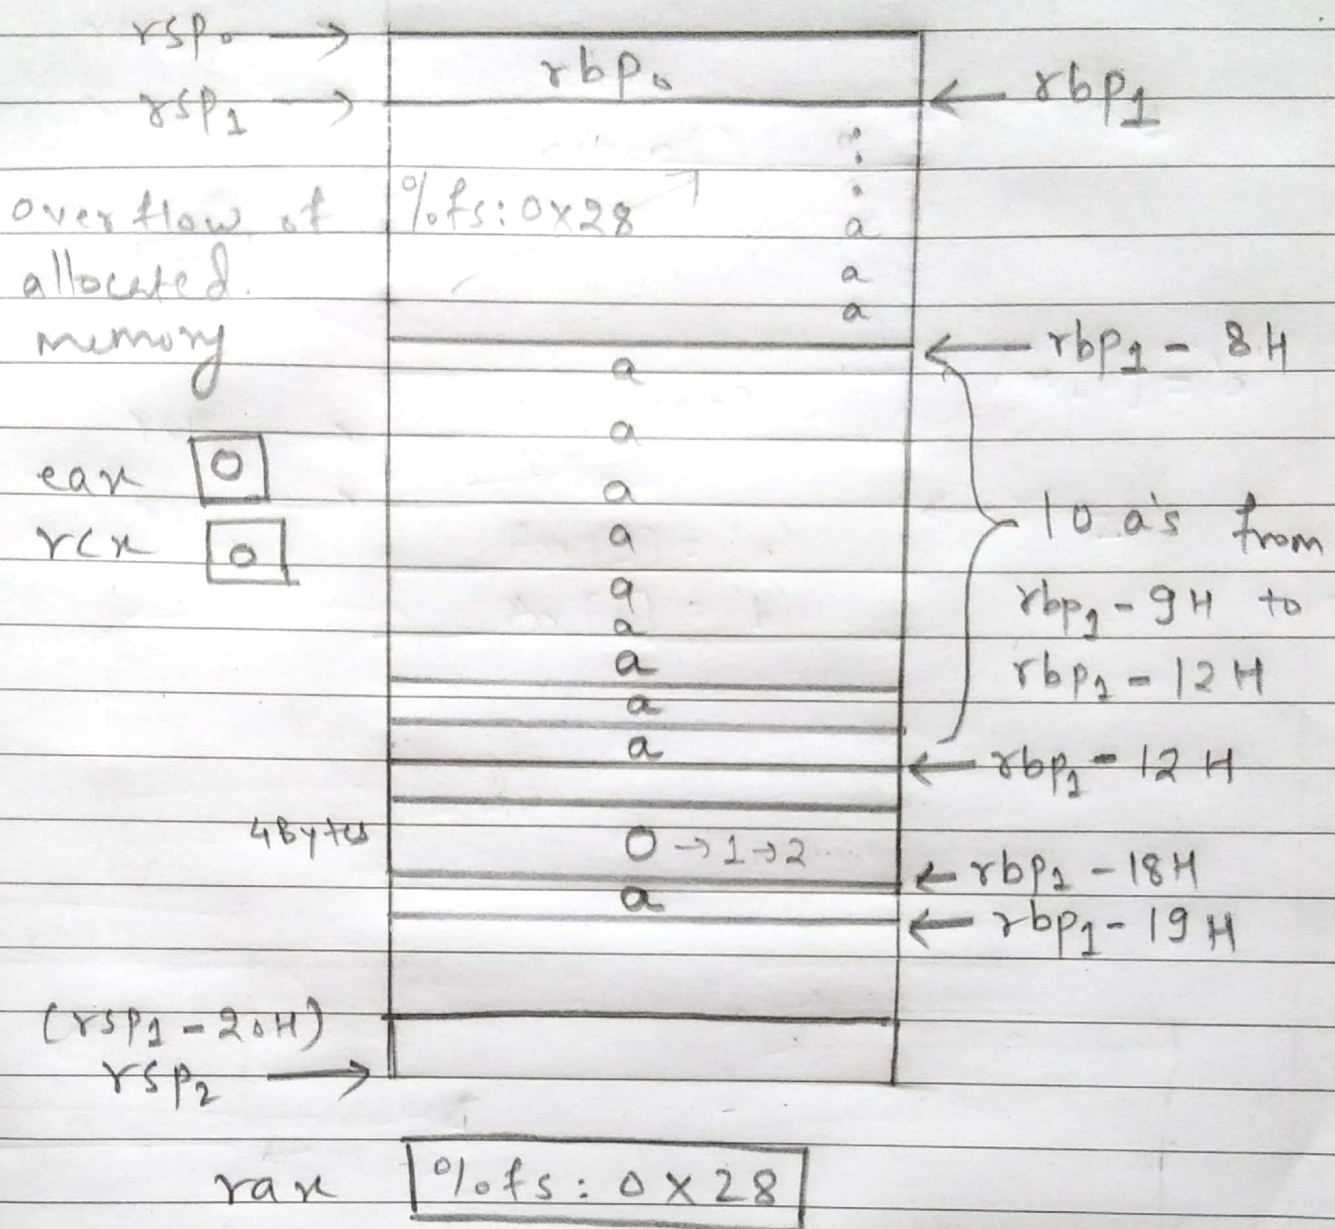 rsp₀ →
rbp₀
rsp₁ →
← rbp₁
overflow of
allocated.
memory
%fs:0x28
a
a
a
← rbp₁ - 8H
a
a
a
a
a
a
a
a
a
eax 0
rcx 0
10 a's from
rbp₁ - 9H to
rbp₁ - 12H
← rbp₁ - 12H
4Bytes
0 → 1 → 2
← rbp₁ - 18H
a
← rbp₁ - 19H
(rsp₁ - 20H)
rsp₂ →
rax %fs: 0x28